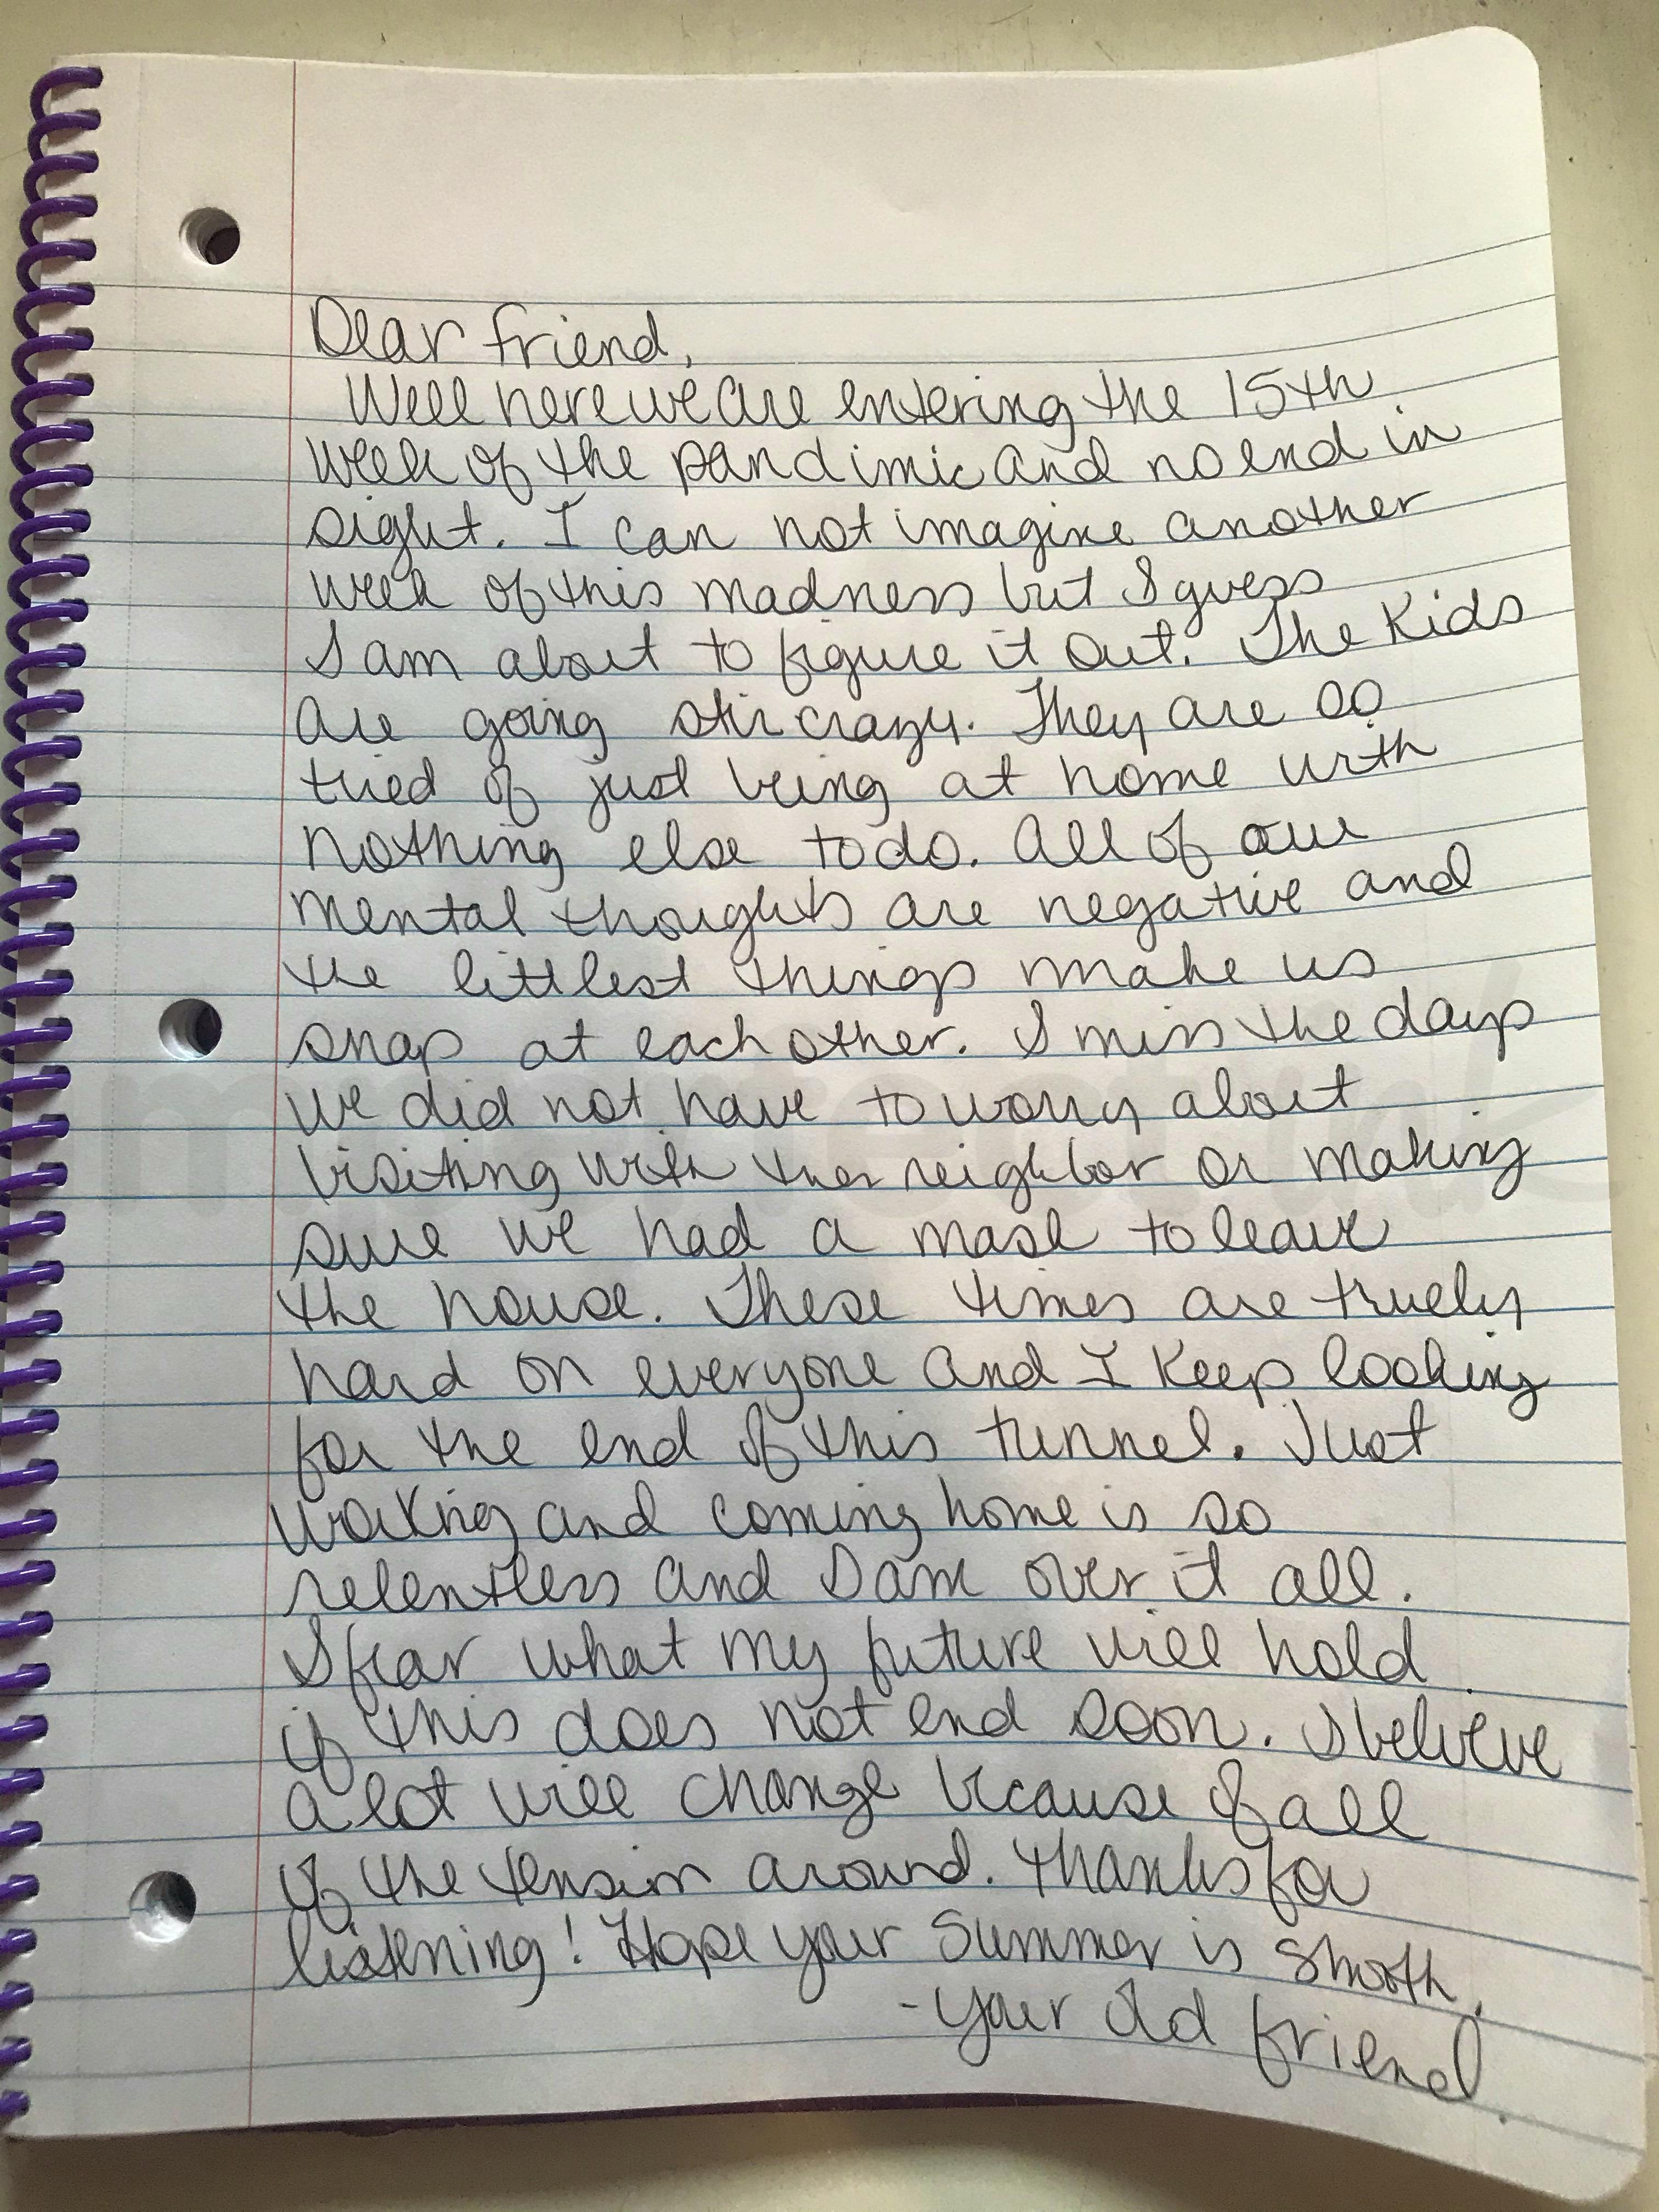 Dear friend,
Well here we are entering the 15th
week of the pandimic and no end in
sight. I can not imagine another
week of this madness but I guess
I am about to figure it out. The Kids
are going stir crazy. They are so
tried of just being at home with
nothing else to do. All of our
mental thoughts are negative and
the littlest things make us
snap at each other. I miss the days
we did not have to worry about
visiting with the neighbor or making
sure we had a mask to leave
the house. These times are truely
hard on everyone and I keep looking
for the end of this tunnel. Just
working and coming home is so
relentless and I am over it all.
I fear what my future will hold
if this does not end soon. I beleive
a lot will change because of all
of the tension around. Thanks for
listening! Hope your summer is smooth.
- Your old friend.